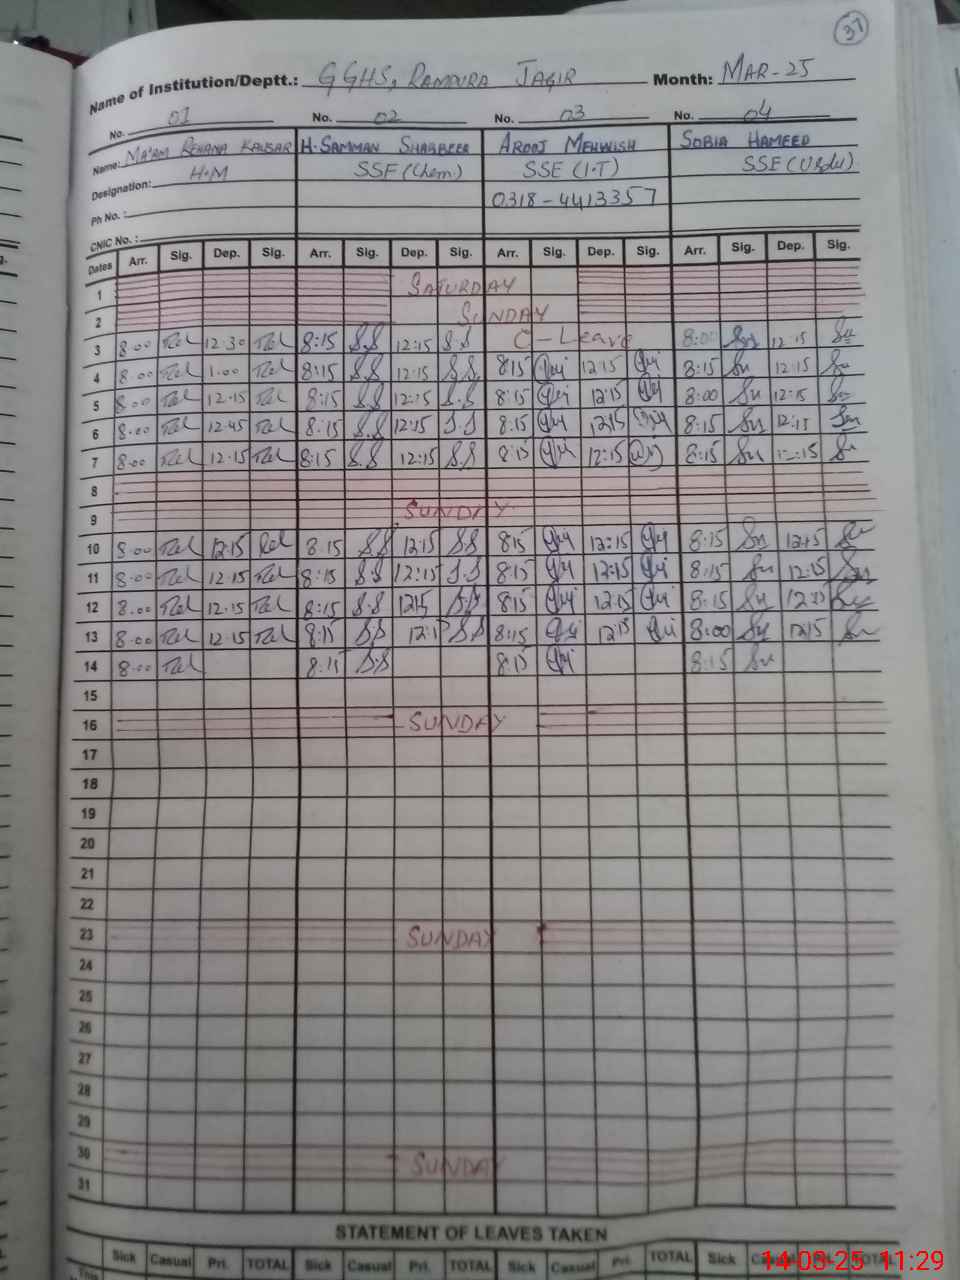 37
Name of Institution/Deptt.: GGHS, RAMPURA JAGIR Month: MAR-25
No. 01 No. 02 No. 03 No. 04
Name: MA'AM REHANA KAUSAR H.SAMMAN SHABBEER AROOJ MEHWISH SOBIA HAMEED
Designation: H.M SSE (Chem) SSE (I.T) SSE (Urdu)
Ph No.: 0318-4413357
CNIC No.:
Dates Arr. Sig. Dep. Sig. Arr. Sig. Dep. Sig. Arr. Sig. Dep. Sig. Arr. Sig. Dep. Sig.
1 SATURDAY
2 SUNDAY
3 8.00 12.30 8:15 S.S 12:15 S.S C-Leave 8:00 12:15
4 8.00 1.00 8:15 S.S 12:15 S.S 8:15 12:15 8:15 12:15
5 8.00 12.15 8:15 S.S 12:15 S.S 8:15 12:15 8:00 12:15
6 8.00 12.45 8:15 S.S 12:15 S.S 8:15 12:15 8:15 12:15
7 8.00 12.15 8:15 S.S 12:15 S.S 8:15 12:15 8:15 12:15
8
9 SUNDAY
10 8.00 12.15 8:15 S.S 12:15 S.S 8:15 12:15 8:15 12:15
11 8.00 12.15 8:15 S.S 12:15 S.S 8:15 12:15 8:15 12:15
12 8.00 12.15 8:15 S.S 12:15 S.S 8:15 12:15 8:15
13 8.00 12.15 8:15 S.S S.S 8:15 12:15 8:00 12:15
14 8.00 8:15 S.S 8:15 8:15
15
16 SUNDAY
17
18
19
20
21
22
23 SUNDAY
24
25
26
27
28
29
30 SUNDAY
31
STATEMENT OF LEAVES TAKEN
Sick Casual Pri. TOTAL Sick Casual Pri. TOTAL Sick Casual Pri. TOTAL Sick Casual Pri. TOTAL
This
14-03-25 11:29